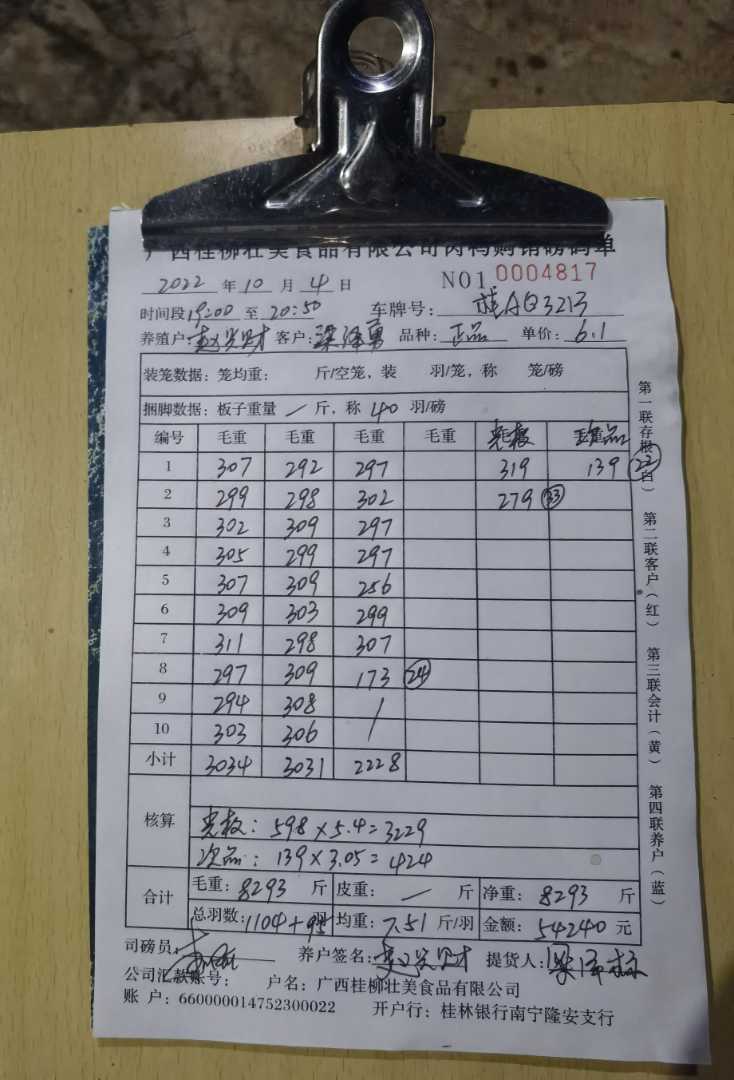 广西桂柳壮美食品有限公司肉鸭购销磅码单
2022 年 10 月 4 日 NO1 0004817
时间段 19:00 至 20:50 车牌号: 桂AQ3213
养殖户: 客户: 梁泽勇 品种: 正品 单价: 6.1
装笼数据: 笼均重: 斤/空笼, 装 羽/笼, 称 笼/磅
捆脚数据: 板子重量 / 斤, 称 40 羽/磅
编号 毛重 毛重 毛重 毛重 次品
1 307 292 297 319 139 (23)
2 299 298 302 279 (33)
3 302 309 297
4 305 299 297
5 307 309 256
6 309 303 299
7 311 298 307
8 297 309 173 (24)
9 294 308 /
10 303 306 /
小计 3034 3031 2228
核算
598×5.4=3229
次品: 139×3.05=424
合计 毛重: 8293 斤 皮重: — 斤 净重: 8293 斤
总羽数: 1104+95 羽 均重: 7.51 斤/羽 金额: 54240 元
司磅员: 养户签名: 提货人:
公司汇款账号: 户名: 广西桂柳壮美食品有限公司
账户: 660000014752300022 开户行: 桂林银行南宁隆安支行
第一联存根(白) 第二联客户(红) 第三联会计(黄) 第四联养户(蓝)